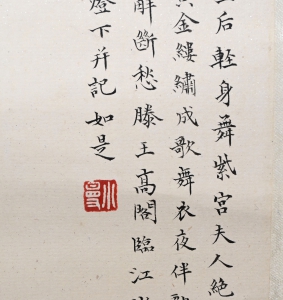 后輕身舞紫宮夫人絕
金縷繡成歌舞衣夜伴
解斷愁滕王高閣臨江
燈下并記如是
小曼